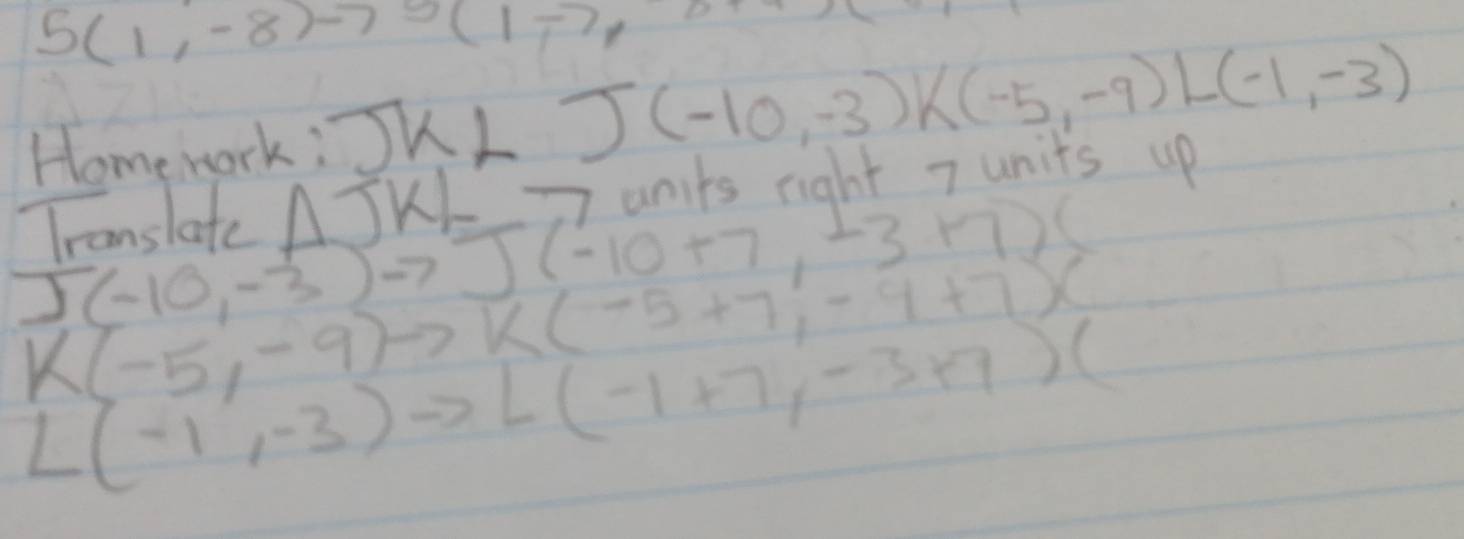 S(1,-8)->S(1-7,
Homework: JKL J(-10,-3)K(-5,-9)L(-1,-3)
Translate Δ JKL 7 units right 7 units up
J(-10,-3)->J(-10+7,-3+7)(
K(-5,-9)->K(-5+7,-9+7)(
L(-1,-3)->L(-1+7,-3+7)(